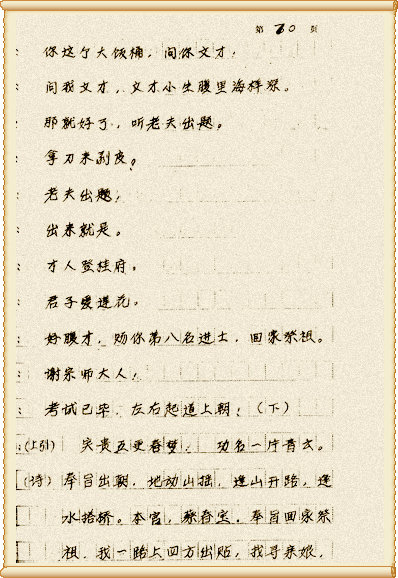 第 20 页
: 你这个大饭桶，问你文才，
: 问我文才，文才小生腹里海样深。
: 那就好了，听老夫出题。
: 拿刀来剥皮？
: 老夫出题；
: 出来就是。
: 才人登桂府。
: 君子爱莲花。
: 好腹才，勋你第八名进士，回家祭祖。
: 谢宗师大人！
: 考试已毕，左右起道上朝！（下）
:（上引） 突贵五更春梦， 功名一片青云。
:（诗）奉旨出朝，地动山摇，逢山开路，逢
水搭桥。本官，蔡春宝。奉旨回家祭
祖，我一路上四方出贴，找寻亲娘，